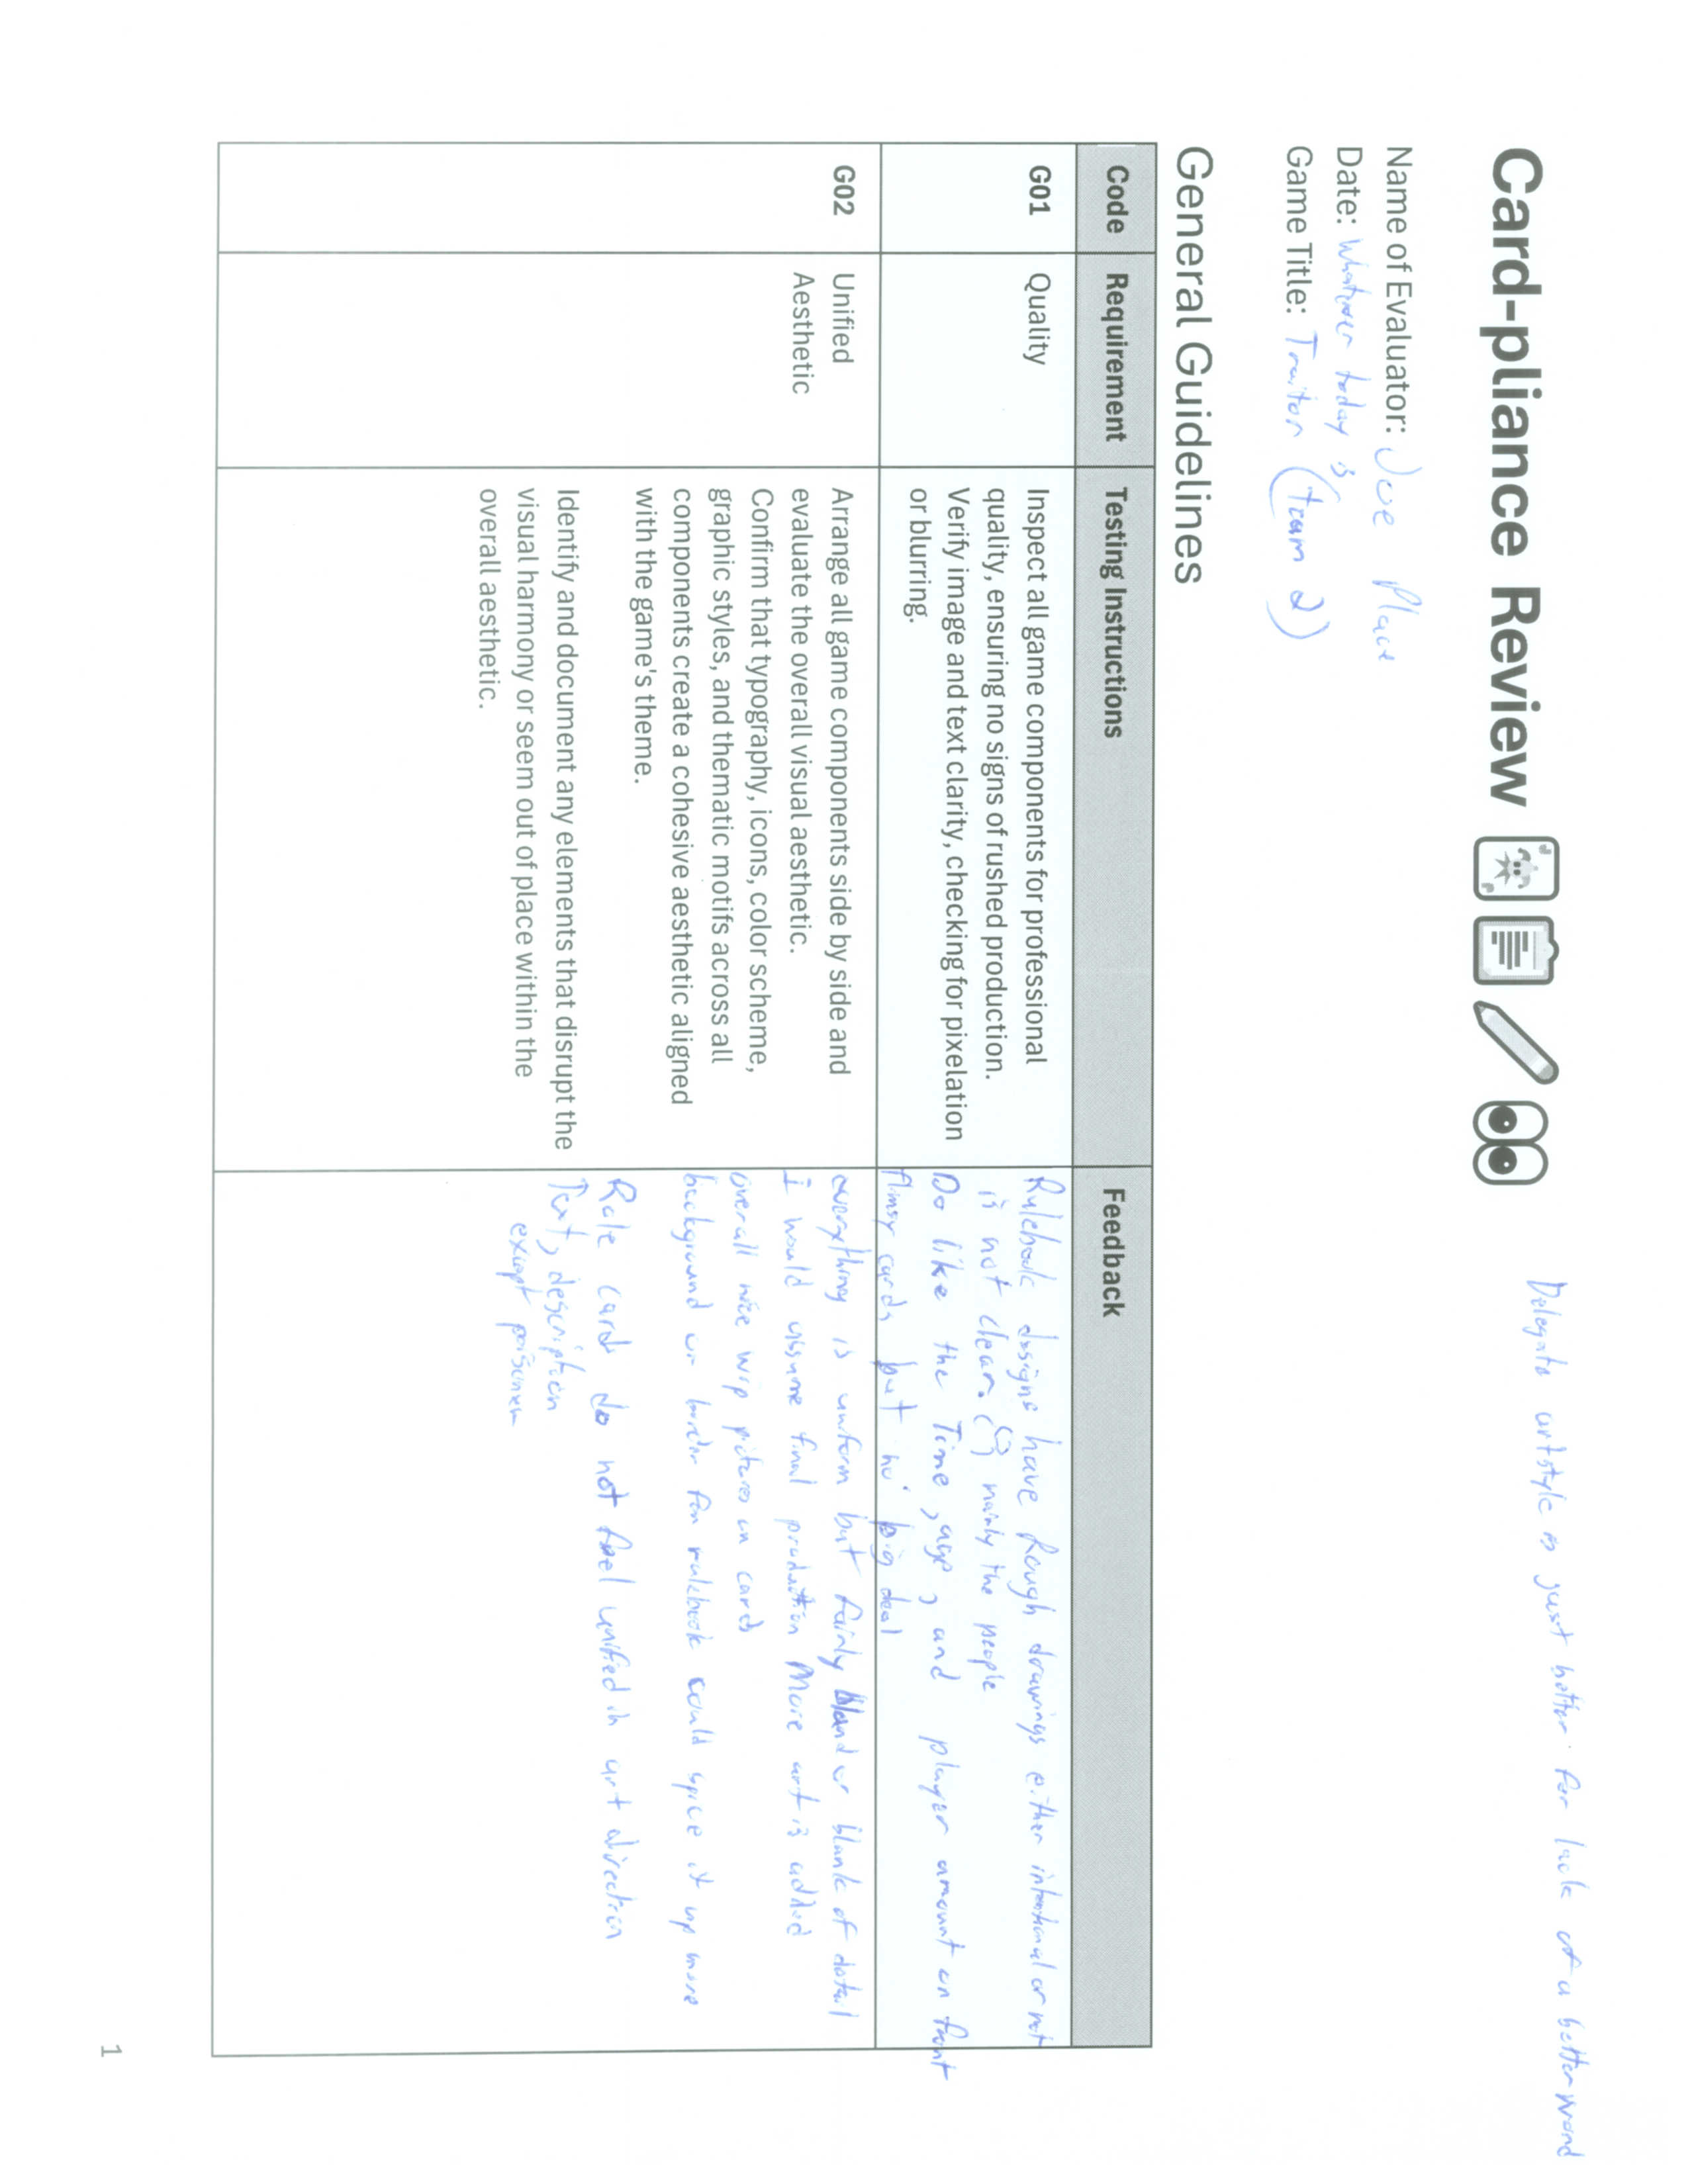 Delegate artstyle is just hotter for lack of a better word
Card-pliance Review
Name of Evaluator: Joe Place
Date: Whatever today is
Game Title: Traitor (team 2)
General Guidelines
Code Requirement Testing Instructions Feedback
G01 Quality
Inspect all game components for professional
quality, ensuring no signs of rushed production.
Verify image and text clarity, checking for pixelation
or blurring.
Rulebook designs have Rough drawings either intentional or not
is not clear. mainly the people
Do like the Time, age, and player amount on front
flimsy cards but no big deal
G02 Unified
Aesthetic
Arrange all game components side by side and
evaluate the overall visual aesthetic.
Confirm that typography, icons, color scheme,
graphic styles, and thematic motifs across all
components create a cohesive aesthetic aligned
with the game's theme.
Identify and document any elements that disrupt the
visual harmony or seem out of place within the
overall aesthetic.
everything is uniform but fairly bland or blank of detail
I would assume final production More art is added
overall nice wip pictures on cards
background or border for rulebook could spice it up more
Role card do not feel unified in art direction
Text, description
except poisoner
1